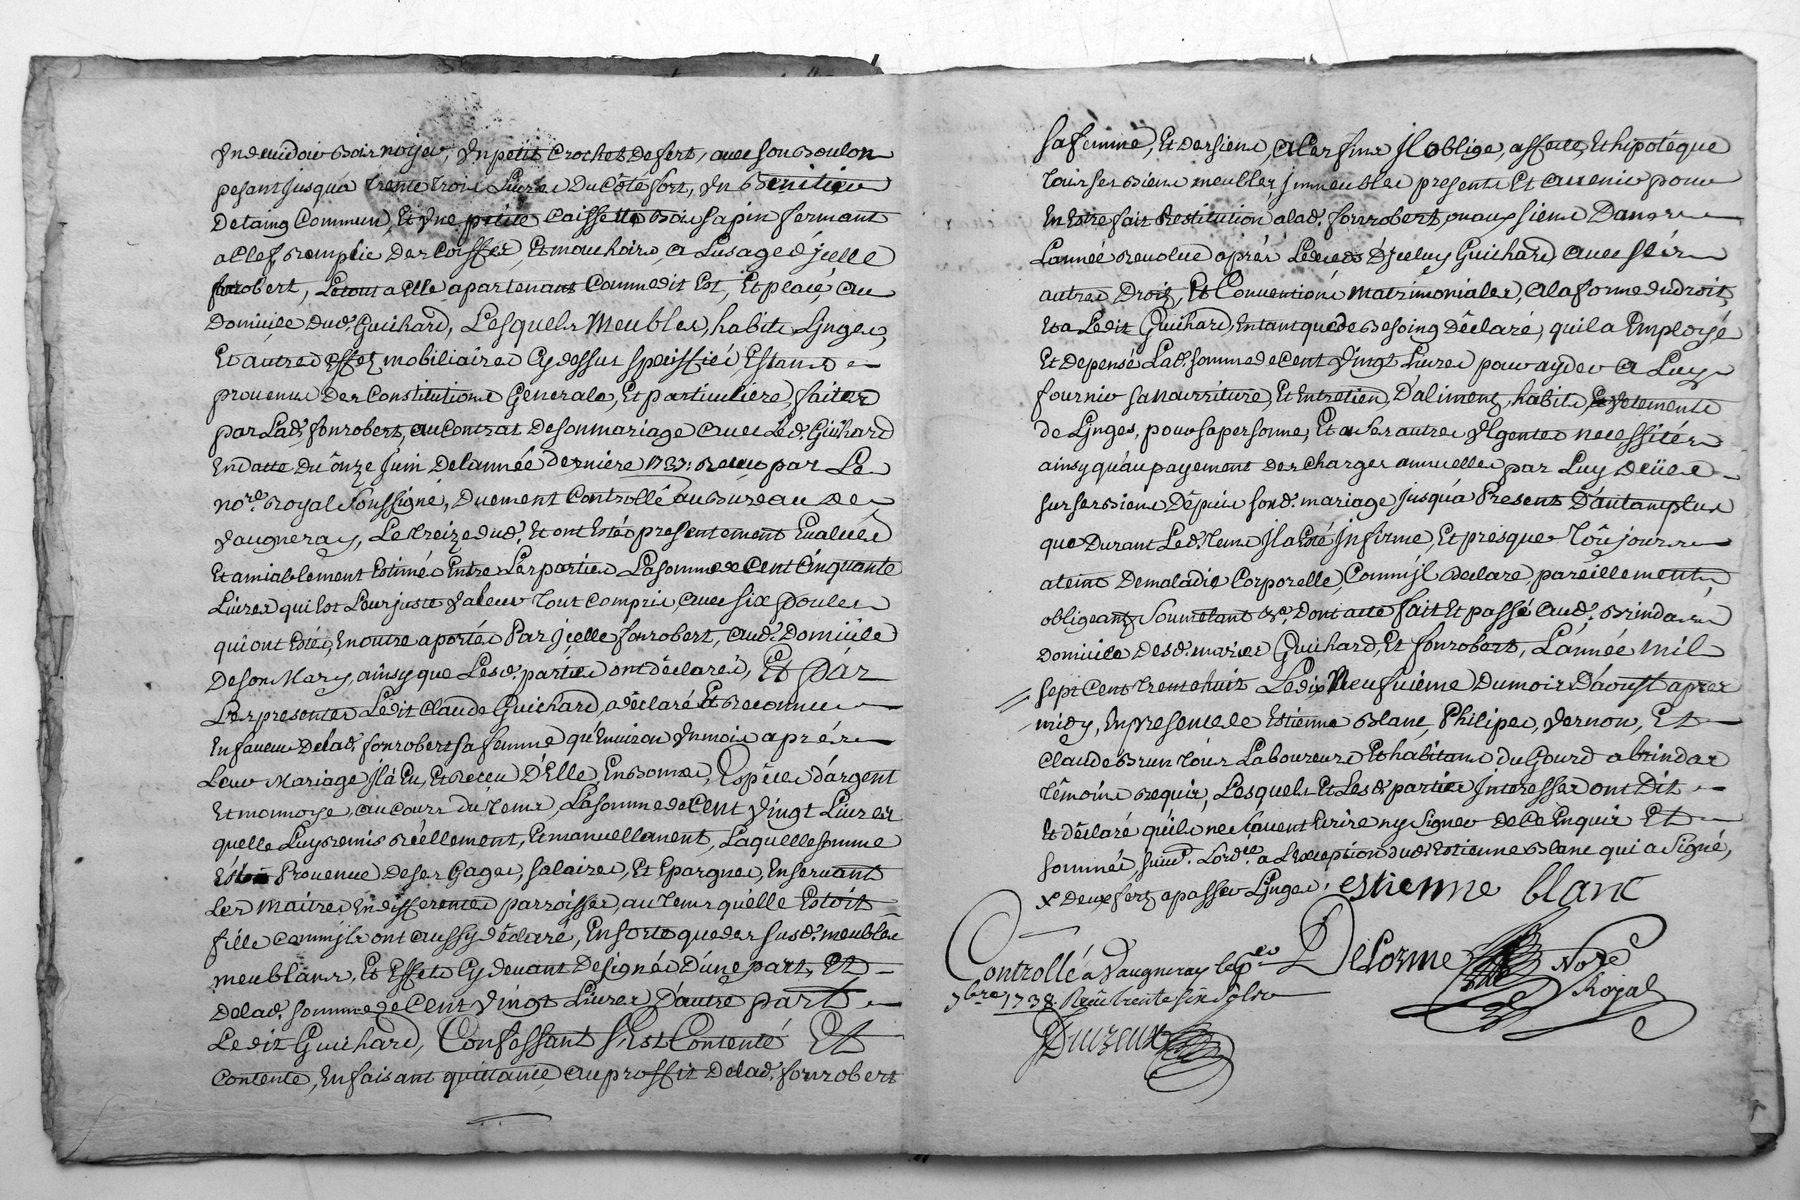 Vn deuidoir bois noyer, Vn petit Crochet de fert, auec son Boulon
pesant jusqua trente trois Liures Du Côté fort, Vn Benitier
De taing Commun, Et Vne petite Caissette Bois sapin fermant
a Clef Remplie Des Coiffes, Et mouchoirs, a Lusage d'jcelle
fonrobert, Le tout a Elle apartenant Comme dit Est, Et placé au
Domicile Dud. Guichard, Lesquels Meubles, habits, Linges,
Et autres effez mobiliaires Cy dessus speciffiés, Estans
prouenus Des Constitutions Generale, Et particuliere, faites
par Lad. fonrobert, au Contrat De son mariage auec Led. Guichard
En datte Du ônze Juin De lannée derniere 1737. Receu par Le
no.re Royal Soussigné, Duement Controllé au Bureau De
Vaugneray, Le treize dud. Et ont Estés presentement Eualués
Et amiablement Estimés Entre Les parties La somme de Cent Cinquante
Liures qui Est Leur juste Valeur Tout Compris, auec six Poules
qui ont Estés, En outre aportés Par jcelle fonrobert, aud. Domicile
De son Mary, ainsy que Lesd. parties ont déclarés, Et Par
Les presentes Ledit Claude Guichard, a déclaré Et Reconnu
En faueur De lad. fonrobert sa femme qu'Enuiron Vn mois aprés
Leur Mariage Jl à Eu, Et Receu D'Elle, En Bonnes, Espéces d'argent
Et monnoye, au Cours du Tems, La somme de Cent Vingt Liures
quelle Luy Remis Réellement, Et manuellement, Laquelle somme
Estoit Prouenue De ses Gages, salaires, Et Epargnes, En seruant
Les Maitres En differentes parroisses, au Tems quélle Estoit
fille Comm'jls ont aussy déclaré, En sorte que des susd. meubles
meublans, Et Effets Cy deuant Designés D'une part, Et
De lad. somme de Cent Vingt Liures D'autre part
Ledit Guichard, Confessant S'Est Contenté Et
Contente, En faisant quittance, au proffit De lad. fonrobert
sa femme, Et des siens, a Ces fins Jl oblige, affecte, Et hipotéque
Tous ses Biens meubles jmmeubles presents Et auenir pour
En Estre fait Restitution a lad. fonrobert, ou aux siens Dans
L'année Reuolue aprés Le deces D'jceluy Guichard, auec ses
autres Droits, Et Conuentions Matrimoniales, a la forme du droit,
Et a Ledit Guichard, En tant que de Besoing Déclaré, qu'il a Employé
Et depensé Lad. somme de Cent Vingt Liures pour ayder a Luy
fournir sa Nourriture, Et Entretien, D'alimens, habits, Vetements
de Linges, pour sa personne, Et a ses autres Vrgentes necessités
ainsy qu'au payement des Charges annuelles par Luy Deües
sur ses Biens Dépuis sond. mariage Jusqu'á Present D'autamplus
que Durant Led. Tems Jl a Esté Jnfirme, Et presque Toûjours
ateint De maladie Corporelle, Comm'jl Declare pareillement,
obligeant, Soumetant &c. Dont acte fait Et passé aud. Brindas
Domicile Desd. mariés Guichard, Et fonrobert, L'année mil
sept Cent Trente huit Le dix Neufuiéme Du mois D'aoust apres
midy, En presence de Estienne Blanc, Philipes, Vernon, Et
Claude Brun Tous Laboureurs Et habitans Du Gourd a brindas
Témoins Requis, Lesquels Et Lesd. parties Jnteresses ont Dit
Et déclaré qu'ils ne Sauent Ecrire ny Signer De Ce Enquis Et
sommés, suiu.t Lord.ce a L'exception dud. Estienne Blanc qui a Signé,
x Deux ferts a passer Linges. estienne blanc
Controllé a Vaugneray le DeLorme Nore
7bre 1738. Royal